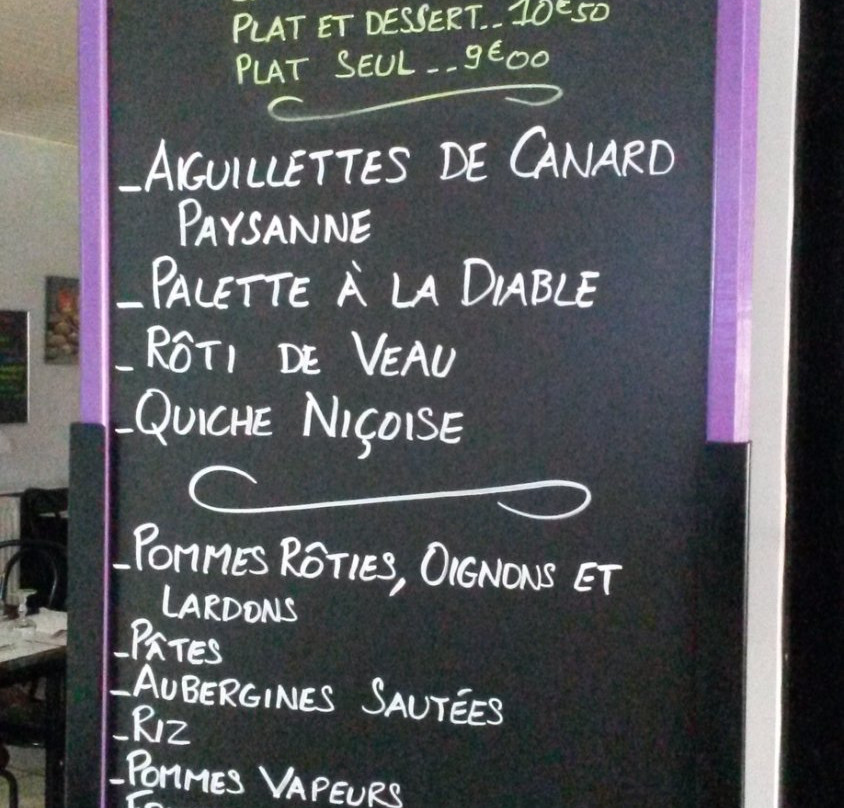 PLAT ET DESSERT..10€50
PLAT SEUL...9€00
-AIGUILLETTES DE CANARD
PAYSANNE
-PALETTE À LA DIABLE
-RÔTI DE VEAU
-QUICHE NIÇOISE
-POMMES RÔTIES, OIGNONS ET
LARDONS
-PÂTES
-AUBERGINES SAUTÉES
-RIZ
-POMMES VAPEURS